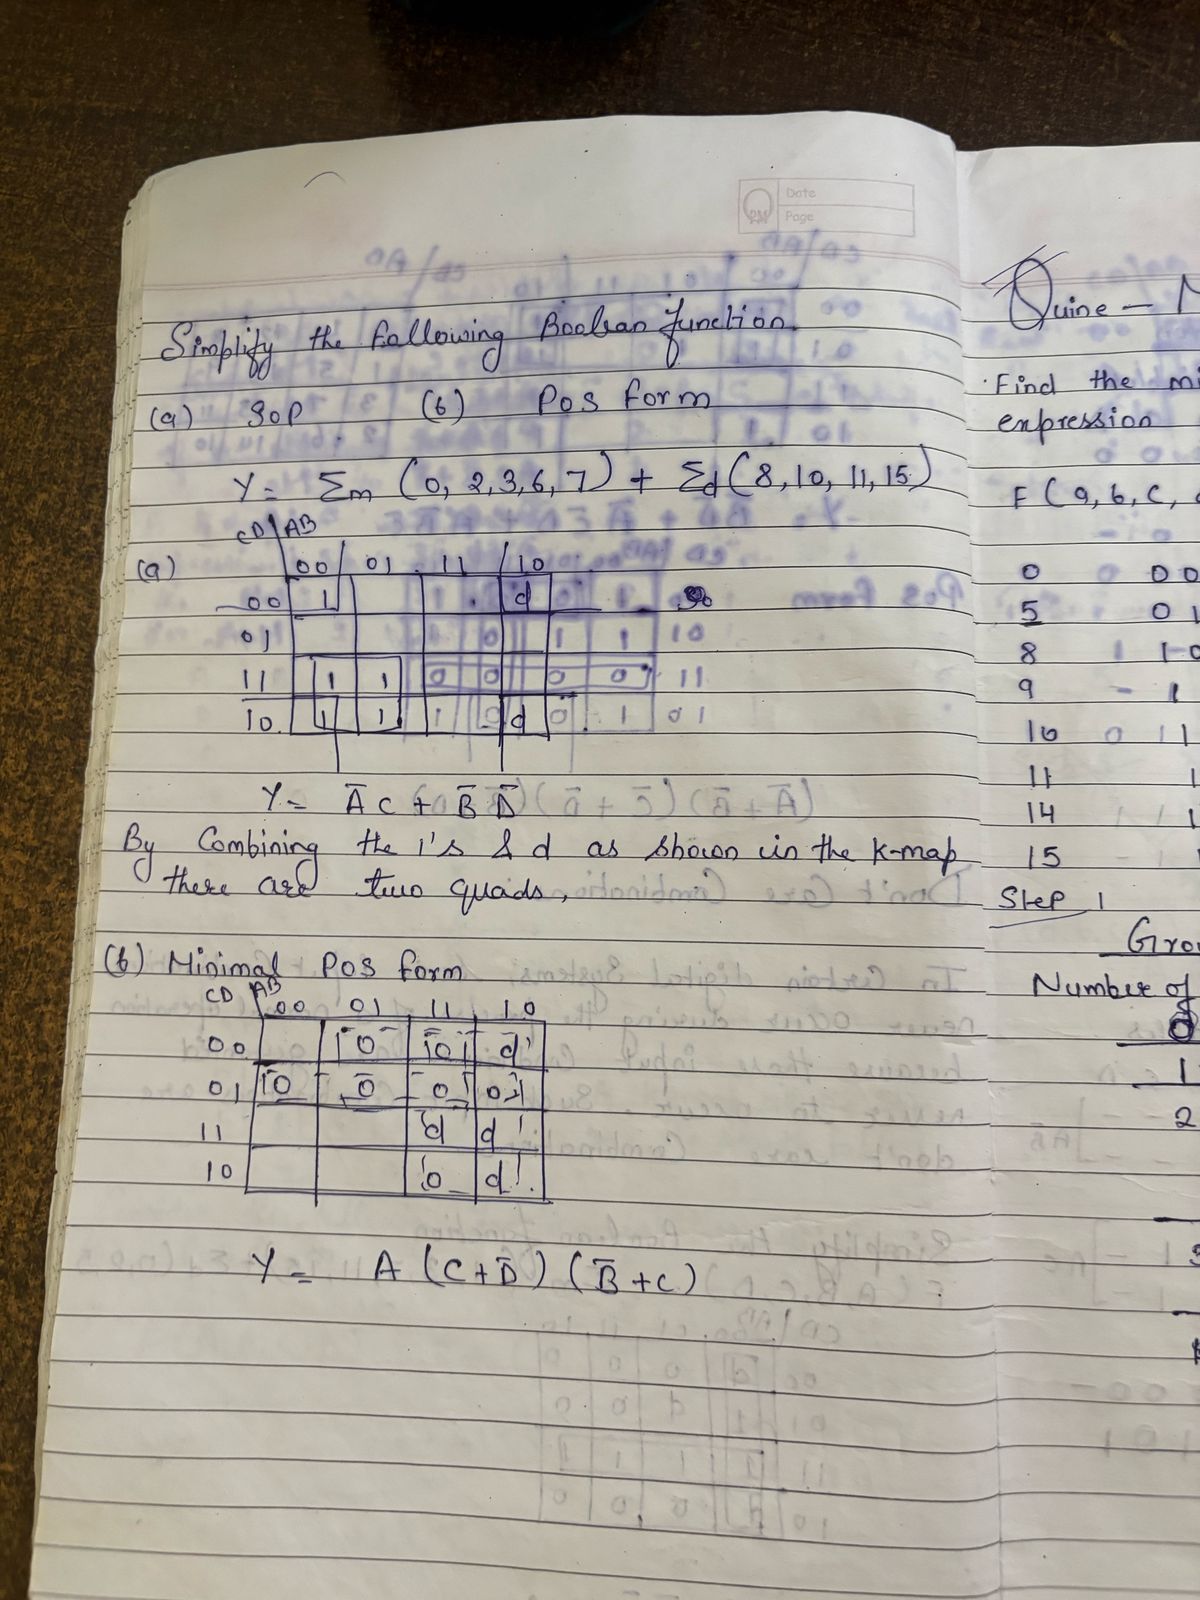 Date
Page
Simplify the following Boolean function.
(a) SOP (b) POS form
Y = Σm (0, 2, 3, 6, 7) + Σd (8, 10, 11, 15)
(a)
CD AB
00 01 11 10
00 1 d
01
11 1 1
10 1 1 d
Y = A̅ C + B̅ D̅
By Combining the 1's & d as shown in the K-map
there are two quads,
(b) Minimal POS form
CD AB
00 01 11 10
00 0 0 d
01 0 0 0 0
11 d d
10 0 d
Y = A (C + D̅) (B̅ + C)
Quine –
Find the
expression
F (a, b, c,
0 00
5 01
8 10
9 1
10 1
11 1
14 1
15 1
Step 1
Number of
0
1
2
3